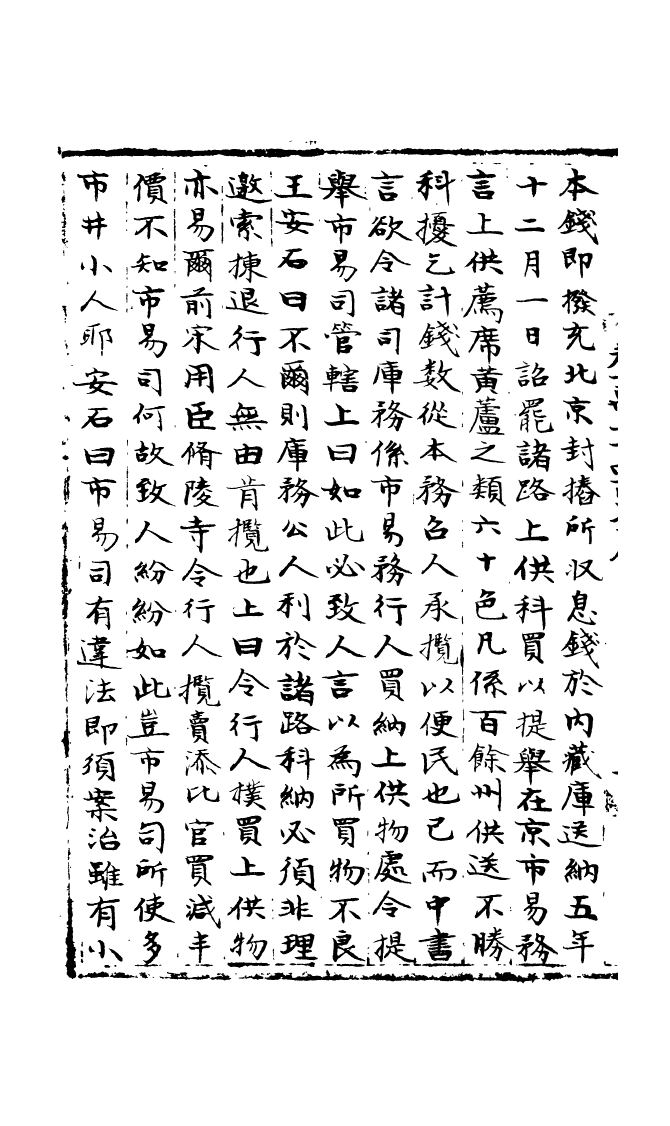 本錢即撥充北京封樁所収息錢於內藏庫送納五年
十二月一日詔罷諸路上供科買以提舉在京市易務
言上供薦席黃蘆之類六十色凡係百餘州供送不勝
科擾乞計錢數從本務召人承攬以便民也已而中書
言欲令諸司庫務係市易務行人買納上供物處令提
舉市易司管轄上曰如此必致人言以為所買物不良
王安石曰不爾則庫務公人利於諸路科納必須非理
邀索揀退行人無由肯攬也上曰令行人樸買上供物
亦易爾前宋用臣脩陵寺令行人攬賣添比官買減半
價不知市易司何故致人紛紛如此豈市易司所使多
市井小人耶安石曰市易司有違法即須案治雖有小